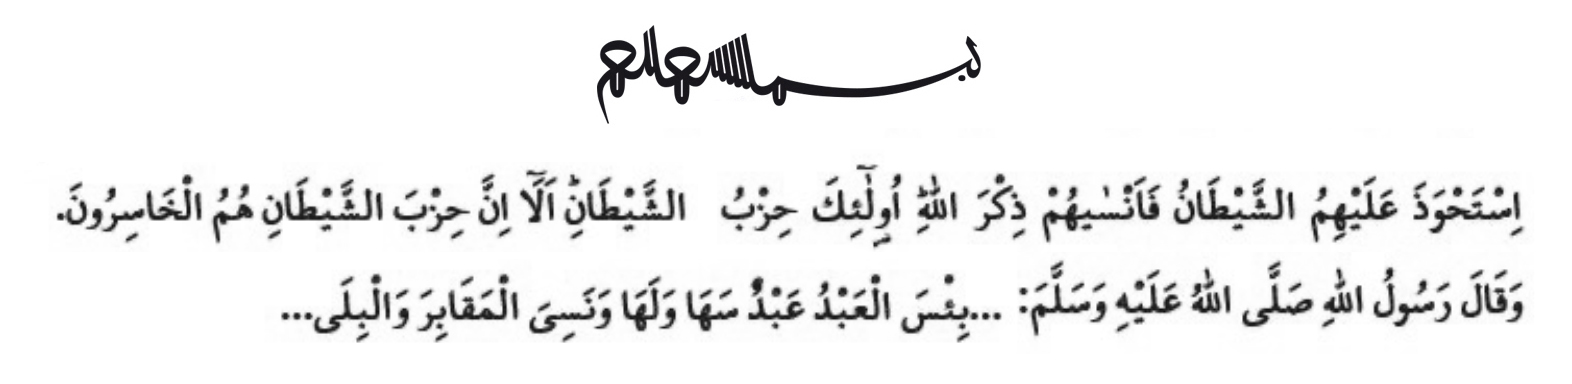 بسم الله الرحمن الرحيم
اِسْتَحْوَذَ عَلَيْهِمُ الشَّيْطَانُ فَاَنْسٰيهُمْ ذِكْرَ اللّٰهِۜ اُو۬لٰٓئِكَ حِزْبُ الشَّيْطَانِۜ اَلَٓا اِنَّ حِزْبَ الشَّيْطَانِ هُمُ الْخَاسِرُونَ.
وَقَالَ رَسُولُ اللّٰهِ صَلَّى اللّٰهُ عَلَيْهِ وَسَلَّمَ: ...بِئْسَ الْعَبْدُ عَبْدٌ سَهَا وَلَهَا وَنَسِىَ الْمَقَابِرَ وَالْبِلَى...